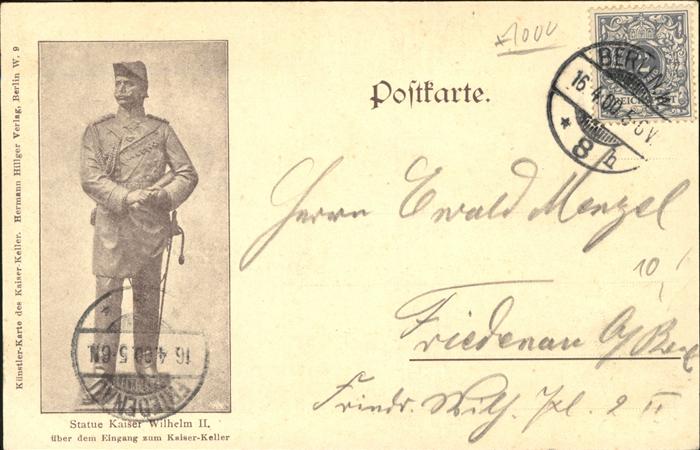 *1000
Postkarte.
BERLIN W
16.4.00.5-6V.
* 8 h
REICHSPOST
Herrn Ewald Menzel
10
Friedenau
Friedr. Wilh. Pl. 2 II
Künstler-Karte des Kaiser-Keller. Hermann Hillger Verlag, Berlin W. 9
16.4.00.5-6N.
FRIEDENAU
Statue Kaiser Wilhelm II.
über dem Eingang zum Kaiser-Keller